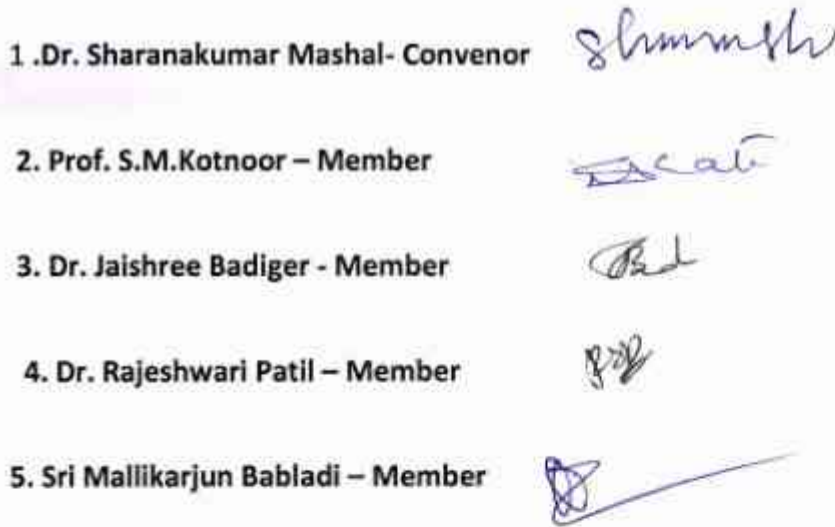 1 .Dr. Sharanakumar Mashal- Convenor
2. Prof. S.M.Kotnoor – Member
3. Dr. Jaishree Badiger - Member
4. Dr. Rajeshwari Patil – Member
5. Sri Mallikarjun Babladi – Member